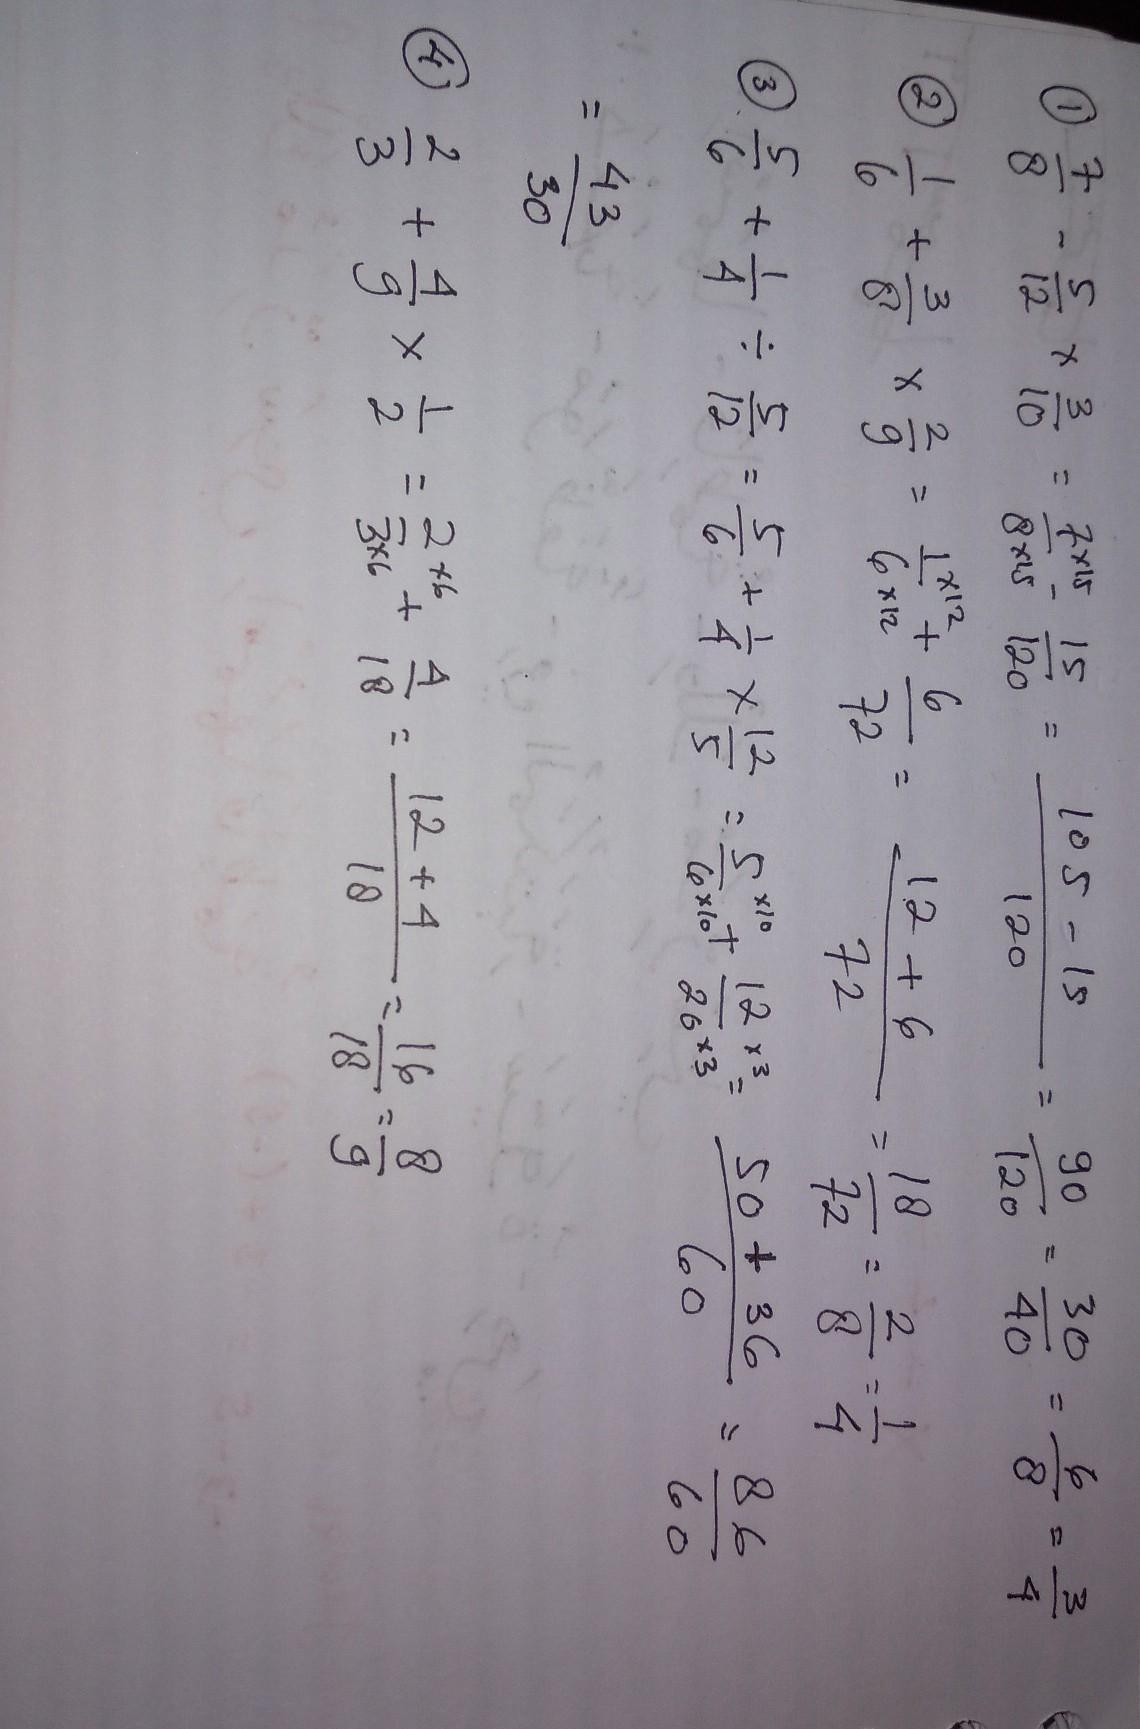 ① 7/8 - 5/12 × 3/10 = 7×15/8×15 - 15/120 = 105 - 15/120 = 90/120 = 30/40 = 6/8 = 3/4
② 1/6 + 3/8 × 2/9 = 1×12/6×12 + 6/72 = 12 + 6/72 = 18/72 = 2/8 = 1/4
③ 5/6 + 1/4 ÷ 5/12 = 5/6 + 1/4 × 12/5 = 5×10/6×10 + 12×3/20×3 = 50 + 36/60 = 86/60
= 43/30
④ 2/3 + 4/9 × 1/2 = 2×6/3×6 + 4/18 = 12 + 4/18 = 16/18 = 8/9